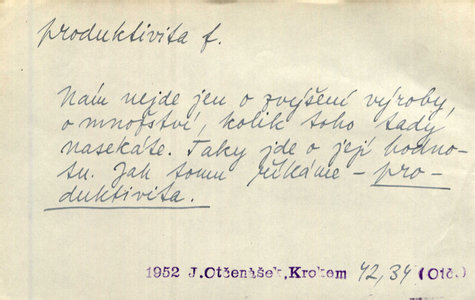 produktivita f.
Nám nejde jen o zvýšení výroby,
o množství, kolik toho tady
nasekáte. Taky jde o její hodno-
tu. Jak tomu říkáme - pro-
duktivita.
1952 J.Otčenášek,Krokem 42,34 (Otč.)